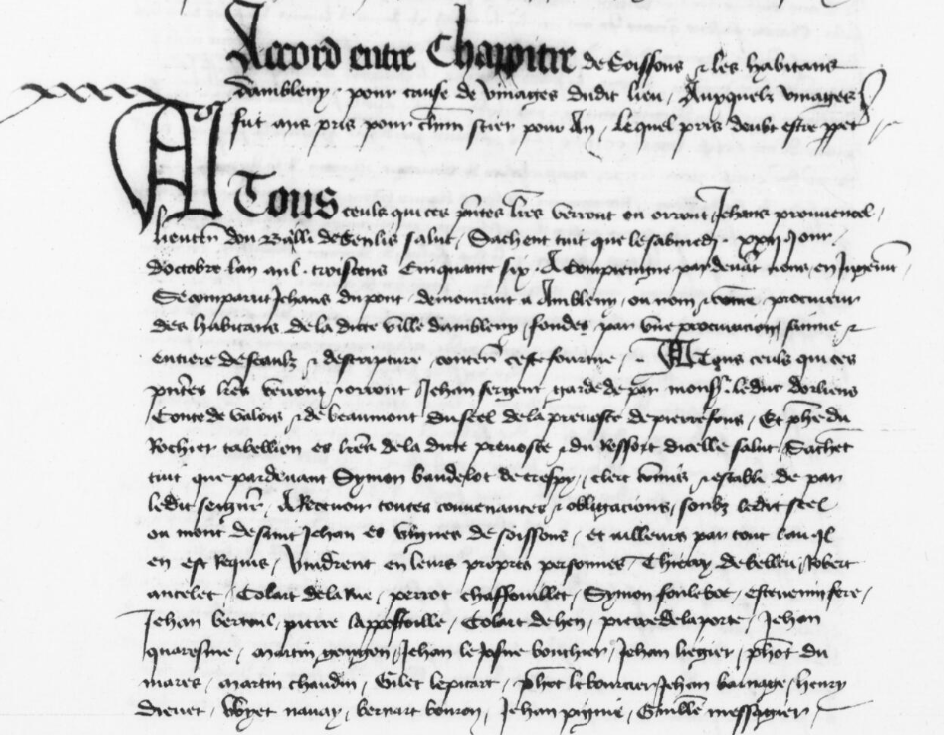 Accord entre Chappitre de Soissons et les habitans
dambleny pour cause de vinages dudit lieu Auxquelx vinages
fut mis pris pour chm stier pour An lequel pris doubt estre ppet
A Tous ceulx qui ces pntes lres verront ou orront Jehans
lieuten dou Bailli de Senlis salut Sachent tuit que le samedi xxij jour
doctobre lan mil troiscens Cinquante six A Compiengne pardevat nous en Jugemt
Se comparut Jehans du pont demourant a Ambleny ou nom et come procureur
des habitans de la dicte ville dambleny fondez par une procuracion saine et
entiere de seaulx et descripture conten ceste fourme A Tous ceulx qui ces
pntes lres verront et orront Jehan sergent garde de par mons le duc dorliens
Conte de Valois et de beaumont du seel de la prevoste de pierrefons Et phe du
Rochier tabellion es lres de la dicte prevoste et du Ressort dicelle salut Sachet
tuit que pardevant Symon baudelot de crespy clerc comis et establi de par
ledit seign A Recevoir toutes convenances et obligacions soubz ledit seel
ou mont de saint Jehan es vignes de soissons et ailleurs par tout la u il
en est Requis vindrent en leurs propres personnes Thieray de belleu Robert
ancelet Colart de la Rue perrot chaffouillet Symon foulebee estevenin fere
Jehan bertoul pierre Colart de hen pierre de la porte Jehan
quaresme martin gongon Jehan le Josne bouchier Jehan liegier phot du
mares martin chaudin Gilet lepicart phot le bourcier Jehan barnage henry
drenet navay bernart bouron Jehan pigme Guille messagier